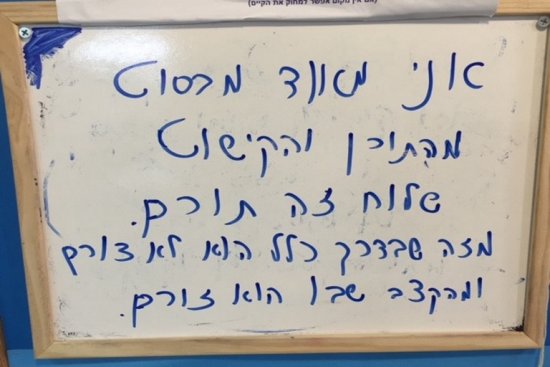 (אם אין מקום אפשר למחוק את הקיים)
אני מאוד מבסוט
מהתוכן והקישוט
שלוח זה תורם.
מזה שבדרך כלל הוא לא צורם
ומהקצב שבו הוא זורם.